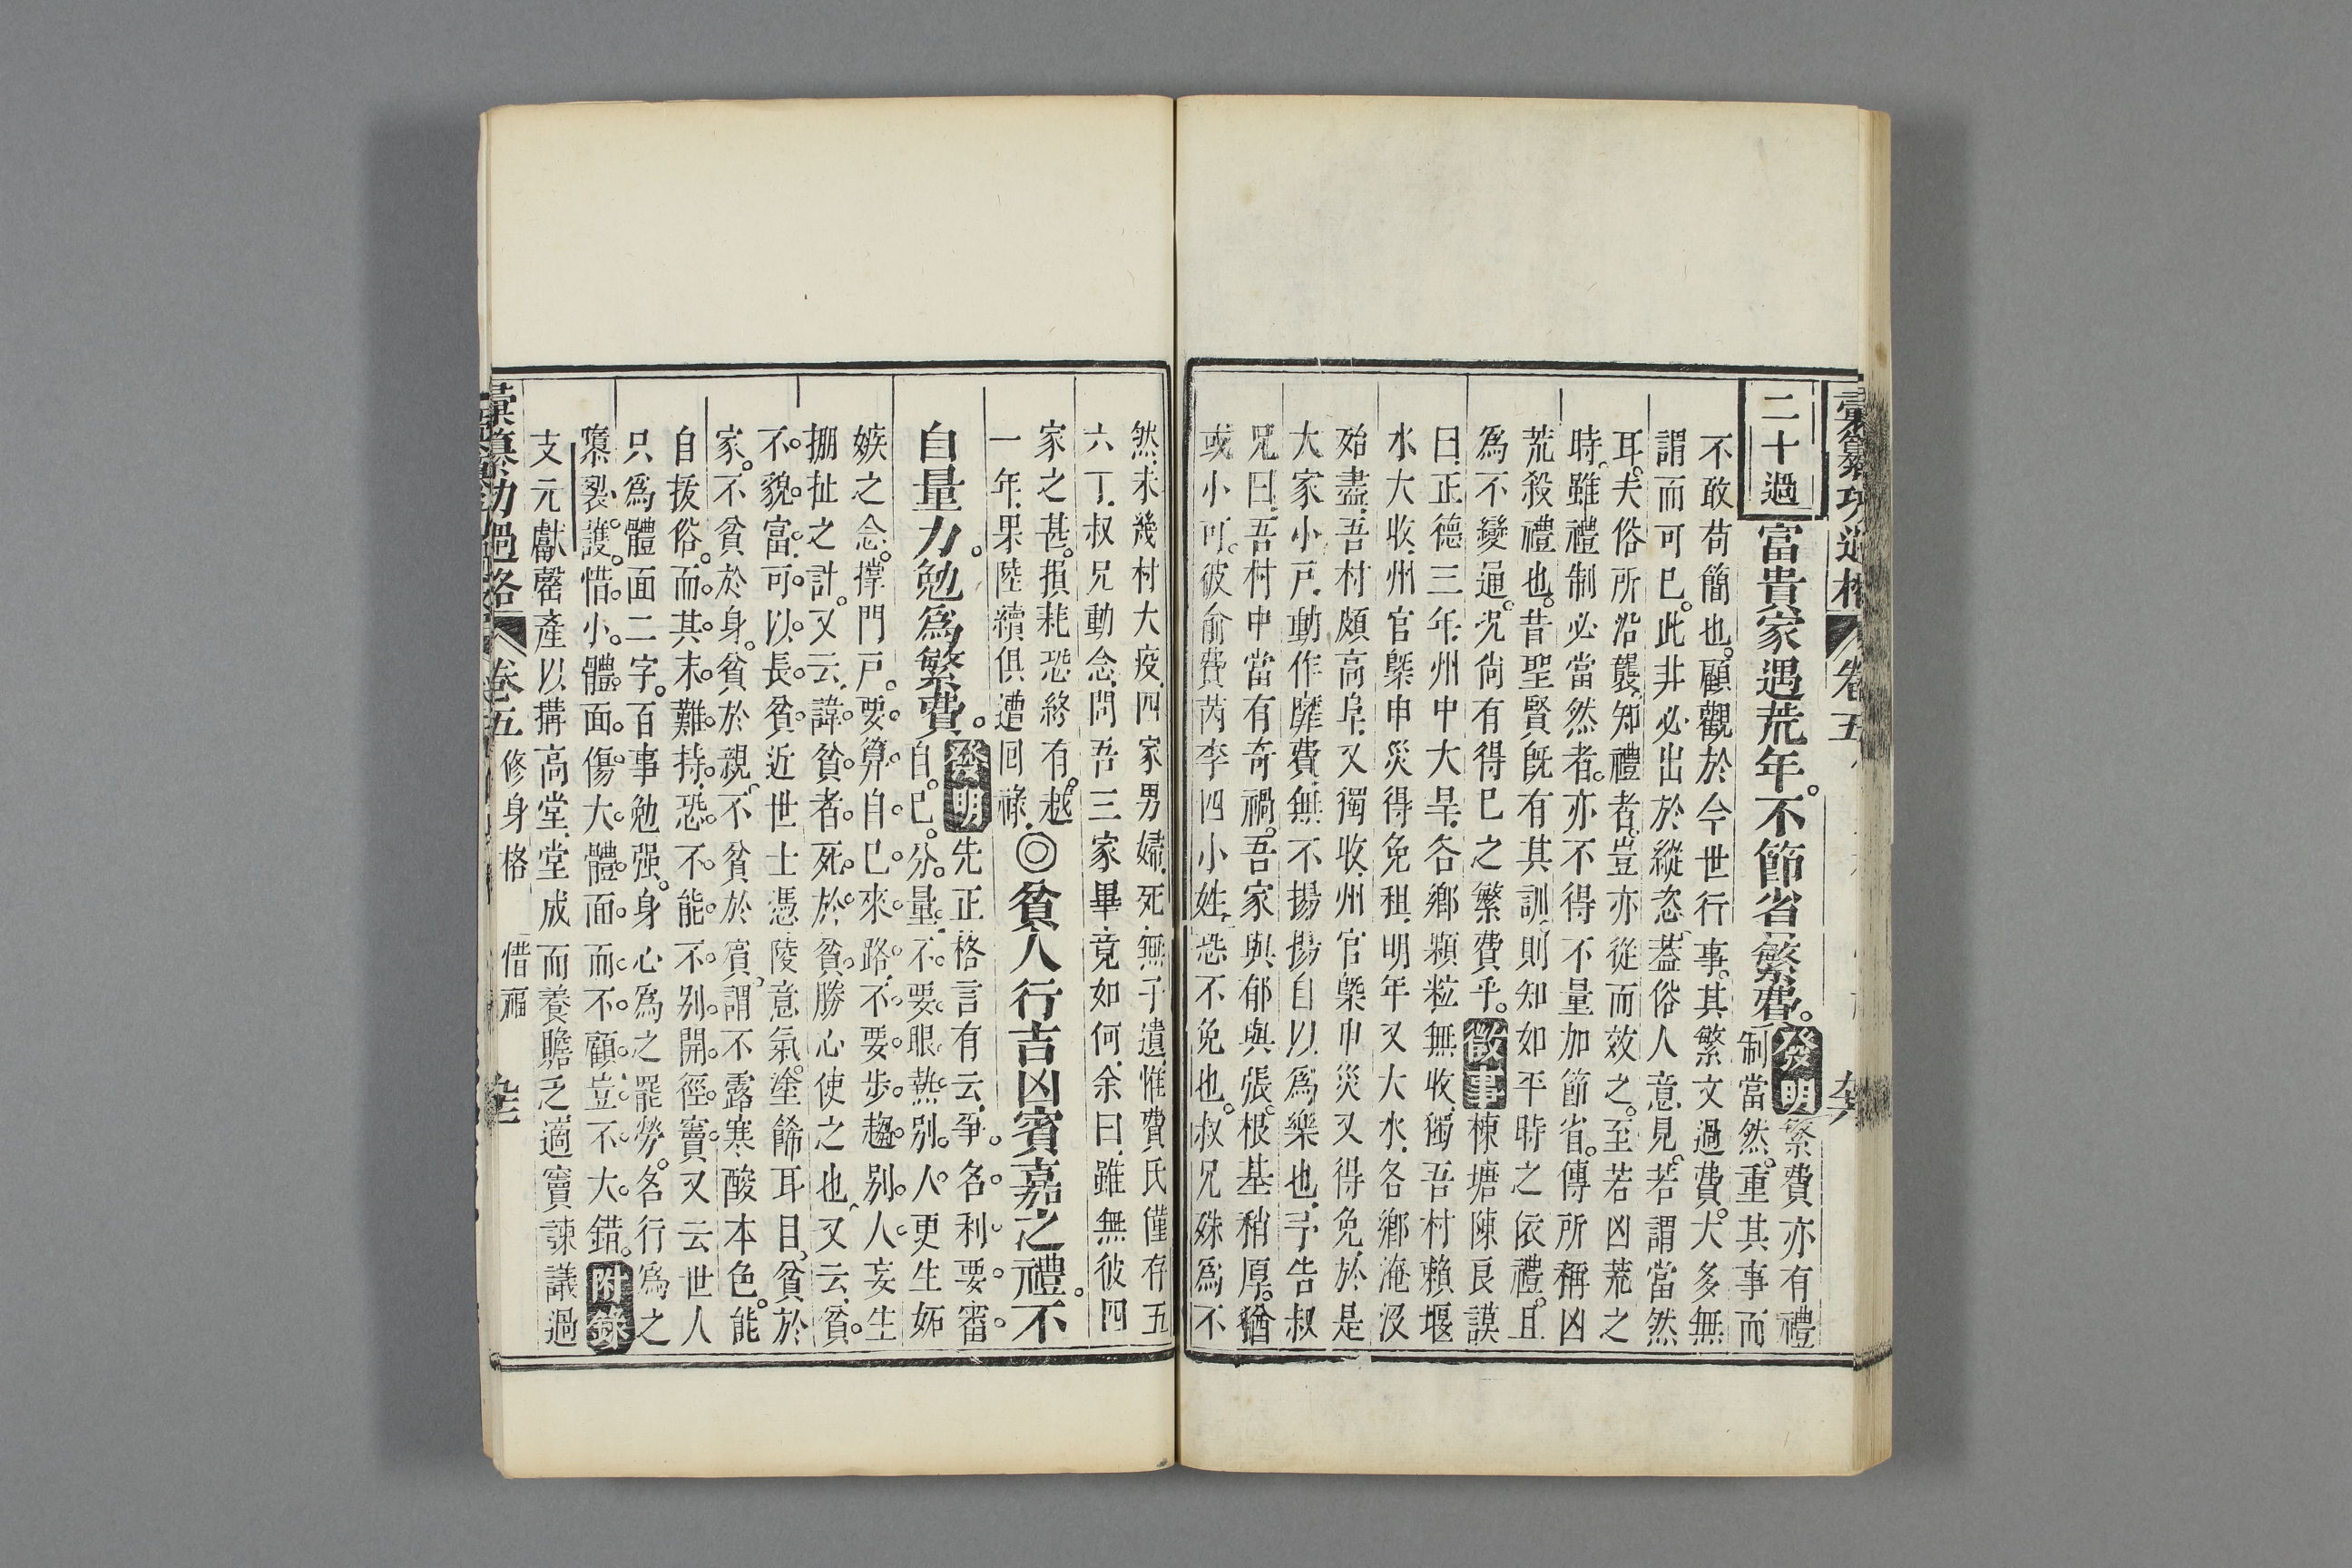 彙纂功過格 卷五
二十過 富貴家遇荒年。不節省繁費。發明繁費亦有禮
制當然。重其事而
不敢苟簡也。顧觀於今世行事。其繁文過費。大多無
謂而可已。此非必出於縱恣。葢俗人意見。若謂當然
耳。夫俗所沿襲。知禮者。豈亦從而效之。至若凶荒之
時。雖禮制必當然者。亦不得不量加節省。傳所稱凶
荒殺禮也。昔聖賢既有其訓。則知如平時之依禮。且
爲不變通。况尙有得已之繁費乎。徵事棟塘陳良謨
曰。正德三年。州中大旱。各鄉顆粒無收。獨吾村賴堰
水大收。州官槩申災得免租。明年又大水。各鄉淹沒
殆盡。吾村頗高阜。又獨收。州官槩申災又得免。於是
大家小戶。動作靡費。無不揚揚自以爲樂也。予告叔
兄曰。吾村中當有奇禍。吾家與郁與張。根基稍厚。猶
或小可。彼俞費芮李四小姓。恐不免也。叔兄殊爲不
然。未幾村大疫。四家男婦。死無孑遺。惟費氏僅存五
六丁。叔兄動念。問吾三家畢竟如何。余曰。雖無彼四
家之甚。損耗恐終有。越
一年。果陸續俱遭回祿。◎貧人行吉凶賓嘉之禮。不
自量力。勉爲繁費。發明先正格言有云。爭名利要審
自己分量。不要眼熱別人。更生妬
嫉之念。撐門戶。要算自己來路。不要步趨別人。妄生
掤扯之計。又云。諱貧者。死於貧。勝心使之也。又云。貧
不貌富。可以長貧。近世士憑陵意氣。塗餙耳目。貧於
家。不貧於身。貧於親。不貧於賓。謂不露寒酸本色。能
自拔俗。而其末難持。恐不能不別開徑竇。又云世人
只爲體面二字。百事勉强。身心爲之罷勞。名行爲之
隳裂。護惜小體面。傷大體面而不顧。豈不大錯。附錄
支元獻罄產以搆高堂。堂成而養贍乏。適竇諫議過
彙纂功過格 卷五 修身格 惜福